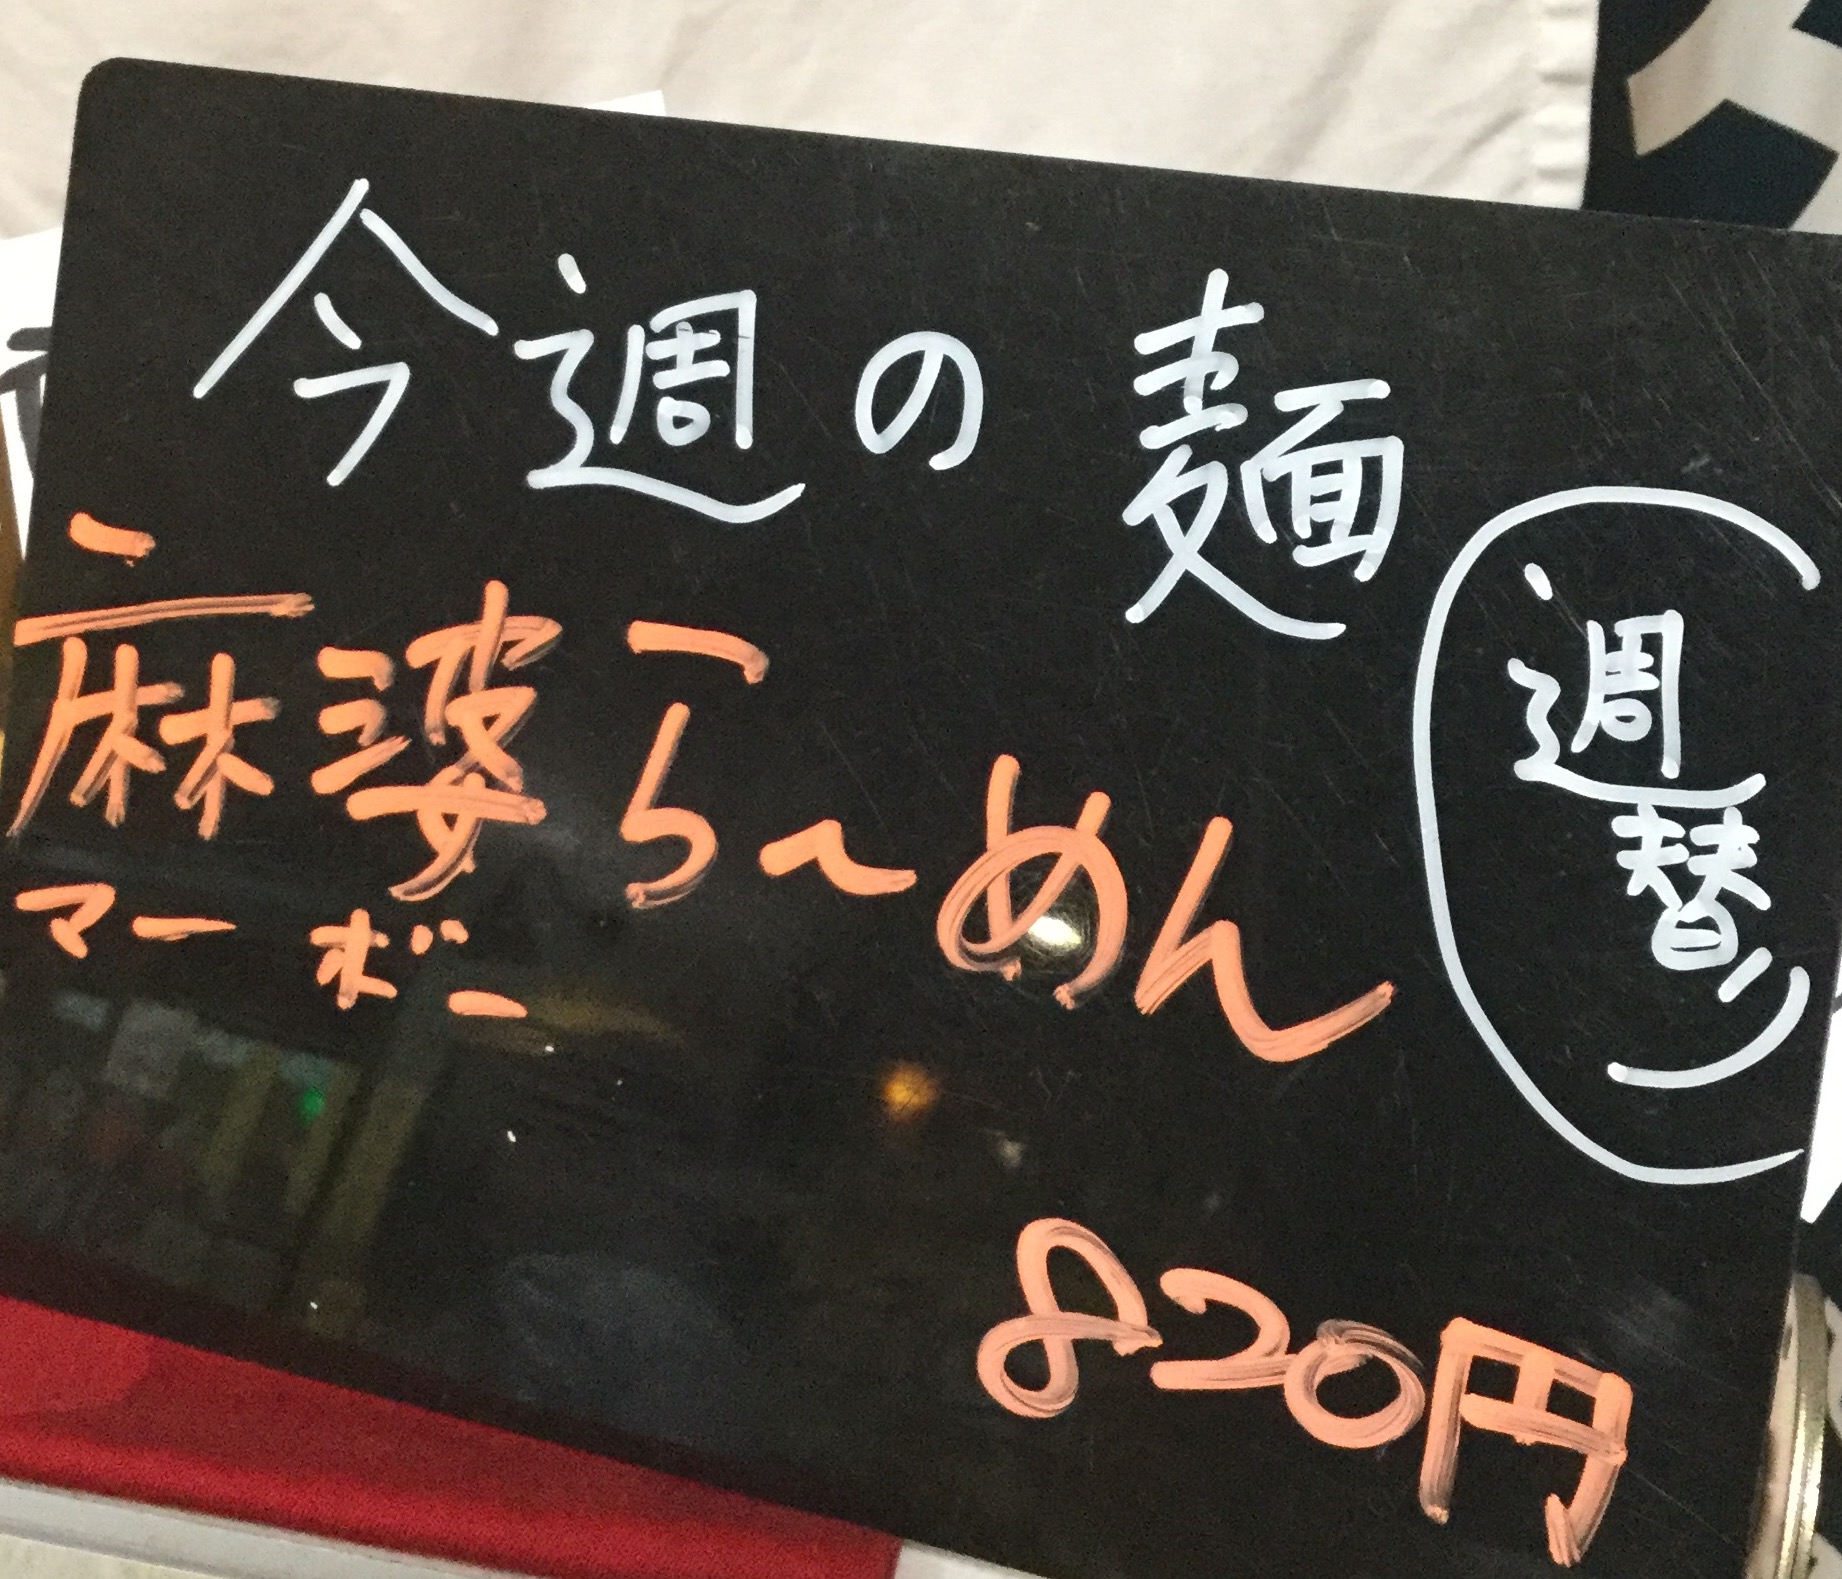 今週の麺
週替り
麻婆ら〜めん
マーボー
820円